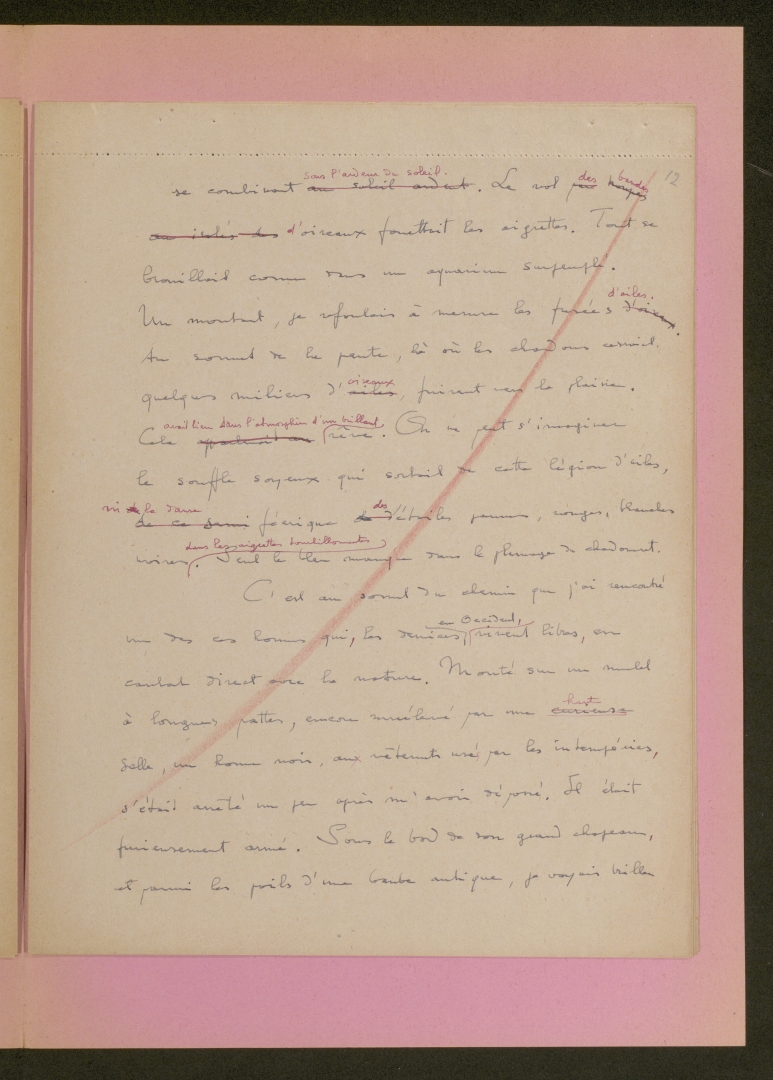 12
sous l'ardeur du soleil. des bandes
se combinant au soleil ardent. Le vol par troupes
ou isolés des d'oiseaux fouettait les aigrettes. Tout se
brouillait comme dans un aquarium surpeuplé.
d'ailes.
Un montant, je refoulais à mesure les fusées d'oiseaux.
Au sommet de la pente, là où les chardons cessaient
oiseaux
quelques milliers d'ailes, fuirent vers la plaine.
avait lieu dans l'atmosphère d'un brillant
Cela rêve. On ne peut s'imaginer
le souffle soyeux qui sortait de cette légion d'ailes,
ni de la danse des
de ce semi féerique de d'étoiles jaunes, rouges, blanches
dans les aigrettes tourbillonnantes
noires. Seul le bleu manque dans le plumage du chardonnet.
C'est au sommet du chemin que j'ai rencontré
en Occident,
un des ces hommes qui, les derniers, vivent libres, en
combat direct avec la nature. Monté sur un mulet
haute
à longues pattes, encore surélevé par une curieuse
selle, un homme noir, aux vêtements usés par les intempéries,
s'était arrêté un peu après m'avoir dépassé. Il était
furieusement armé. Sous le bord de son grand chapeau,
et parmi les poils d'une barbe antique, je voyais briller